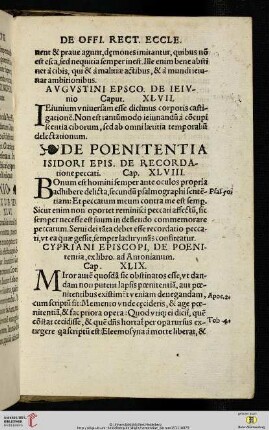 DE OFFI. RECT. ECCLE.
nent & praue agunt, demones imitantur, quibus nõ
est esca, sed nequitia semper inest. Ille enim bene absti
net à cibis, qui & à malitiæ actibus, & à mundi ieiu
nat ambitionibus.
AVGVSTINI EPSCO. DE IEIV-
nio Caput. XLVII.
IEiunium vniuersam esse dicimus corporis castigationẽ
tionẽ. Non est tantũmodo ieiunandũ à cõcupi
scentia ciborum, sed ab omni lætitia temporaliũ
delectationum.
DE POENITENTIA
ISIDORI EPIS. DE RECORDA-
tione peccati. Cap. XLVIII.
BOnum est homini semper ante oculos propria
adhibere delicta, secundũ psalmographi senten-
Psal. 50
tiam: Et peccatum meum contra me est semp.
Sicut enim non oportet reminisci peccati affectũ, sic
semper necesse est suum in deflendo commemorare
peccatum.
CYPRIANI EPISCOPI, DE POENI-
tentia, ex libro. ad Antonianum.
Cap. XLIX.
MIror autẽ quosdã sic obstinatos esse, vt dan-
dam non putent lapsis pœnitentiã, aut pœ-
nitentibus existimẽt veniam denegandam,
Apoc. 2.
cum scriptũ sit: Memento vnde cecideris, & age pœni-
tentiã, & fac priora opera: Quod vtiq; ei dicit, quẽ
cõstat cecidisse, & quẽ dñs hortat per opa rursus ex-
Tob. 4.
surgere qa scriptũ est Eleemosyna à morte liberat, &